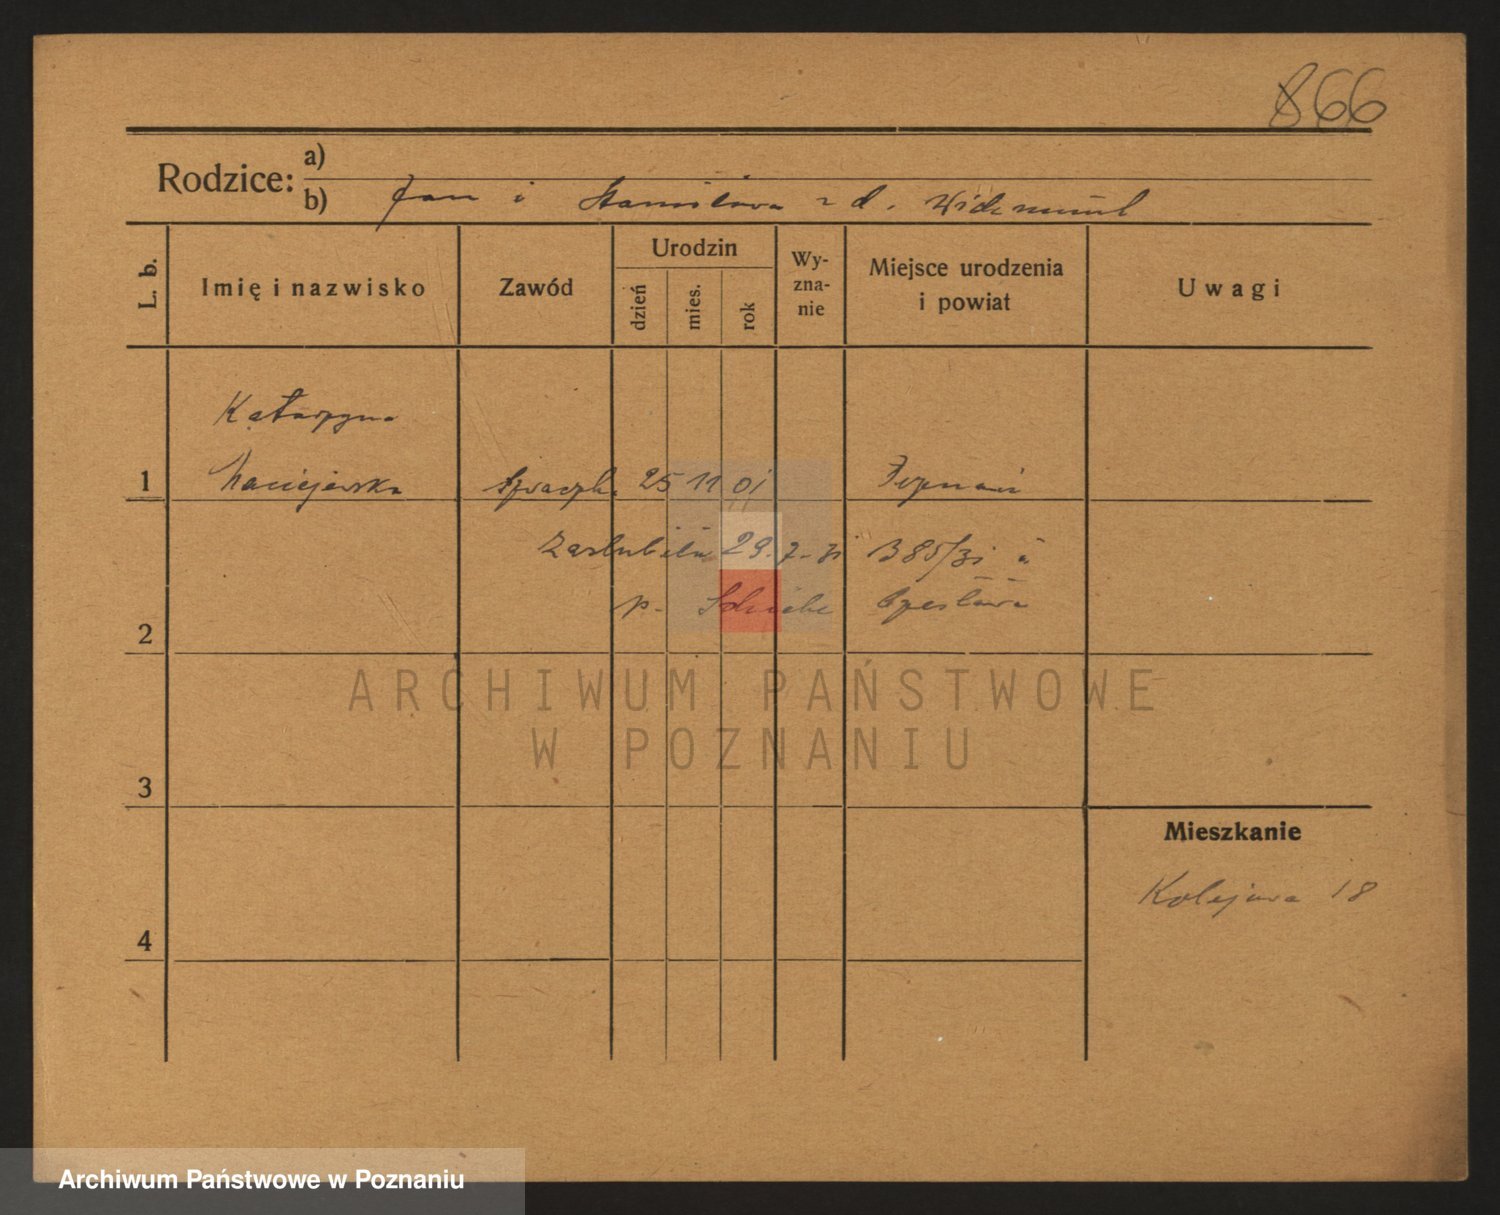 866
Rodzice:
a)
b) Jan i Stanisława z d.
L. b.
Imię i nazwisko
Zawód
Urodzin
dzień
mies.
rok
Wy-
zna-
nie
Miejsce urodzenia
i powiat
Uwagi
Katarzyna
1 Maciejewska Szwaczka 25 11 01 Poznań
Zaślubiła 29.7.31 B 385/31 
p. Czesława
2
ARCHIWUM PAŃSTWOWE
W POZNANIU
3
Mieszkanie
Kolejowa 18
4
Archiwum Państwowe w Poznaniu